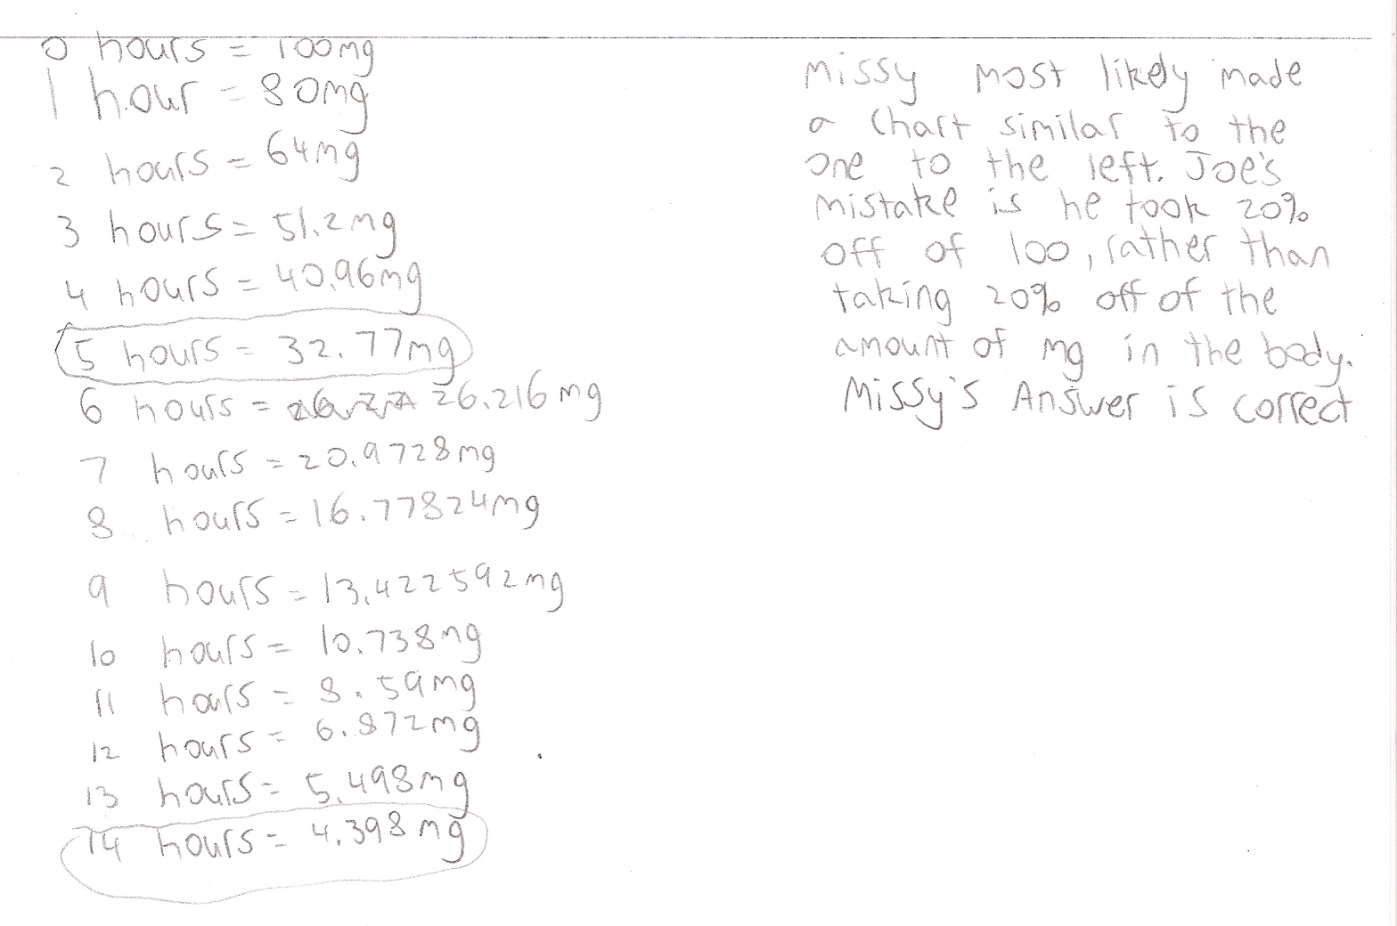 0 hours = 100mg
1 hour = 80mg
2 hours = 64mg
3 hours = 51.2mg
4 hours = 40.96mg
5 hours = 32.77mg
6 hours = 26.216mg
7 hours = 20.9728mg
8 hours = 16.77824mg
9 hours = 13.422592mg
10 hours = 10.738mg
11 hours = 8.59mg
12 hours = 6.872mg
13 hours = 5.498mg
14 hours = 4.398mg
Missy most likely made
a chart similar to the
one to the left. Joe's
mistake is he took 20%
off of 100, rather than
taking 20% off of the
amount of mg in the body.
Missy's Answer is correct